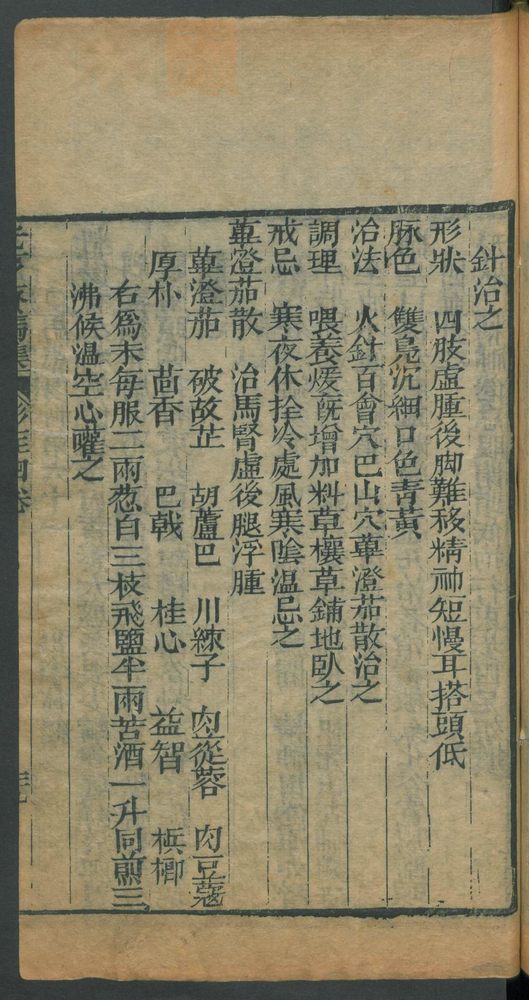 針治之
形狀 四肢虛腫後脚難移精神短慢耳搭頭低
脉色 雙鳧沉細口色青黃
治法 火針百會穴巴山穴蓽澄茄散治之
調理 喂養煖廐增加料草穰草鋪地臥之
戒忌 寒夜休拴冷處風寒陰温忌之
蓽澄茄散 治馬腎虛後腿浮腫
蓽澄茄 破故芷 胡蘆巴 川練子 肉蓯蓉 肉豆蔻
厚朴 茴香 巴戟 桂心 益智 檳榔
右爲末每服二兩葱白三枝飛鹽半兩苦酒一升同煎三
沸候温空心灌之